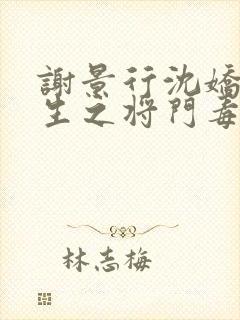 謝景行沈嬌
生之將門毒
林志梅